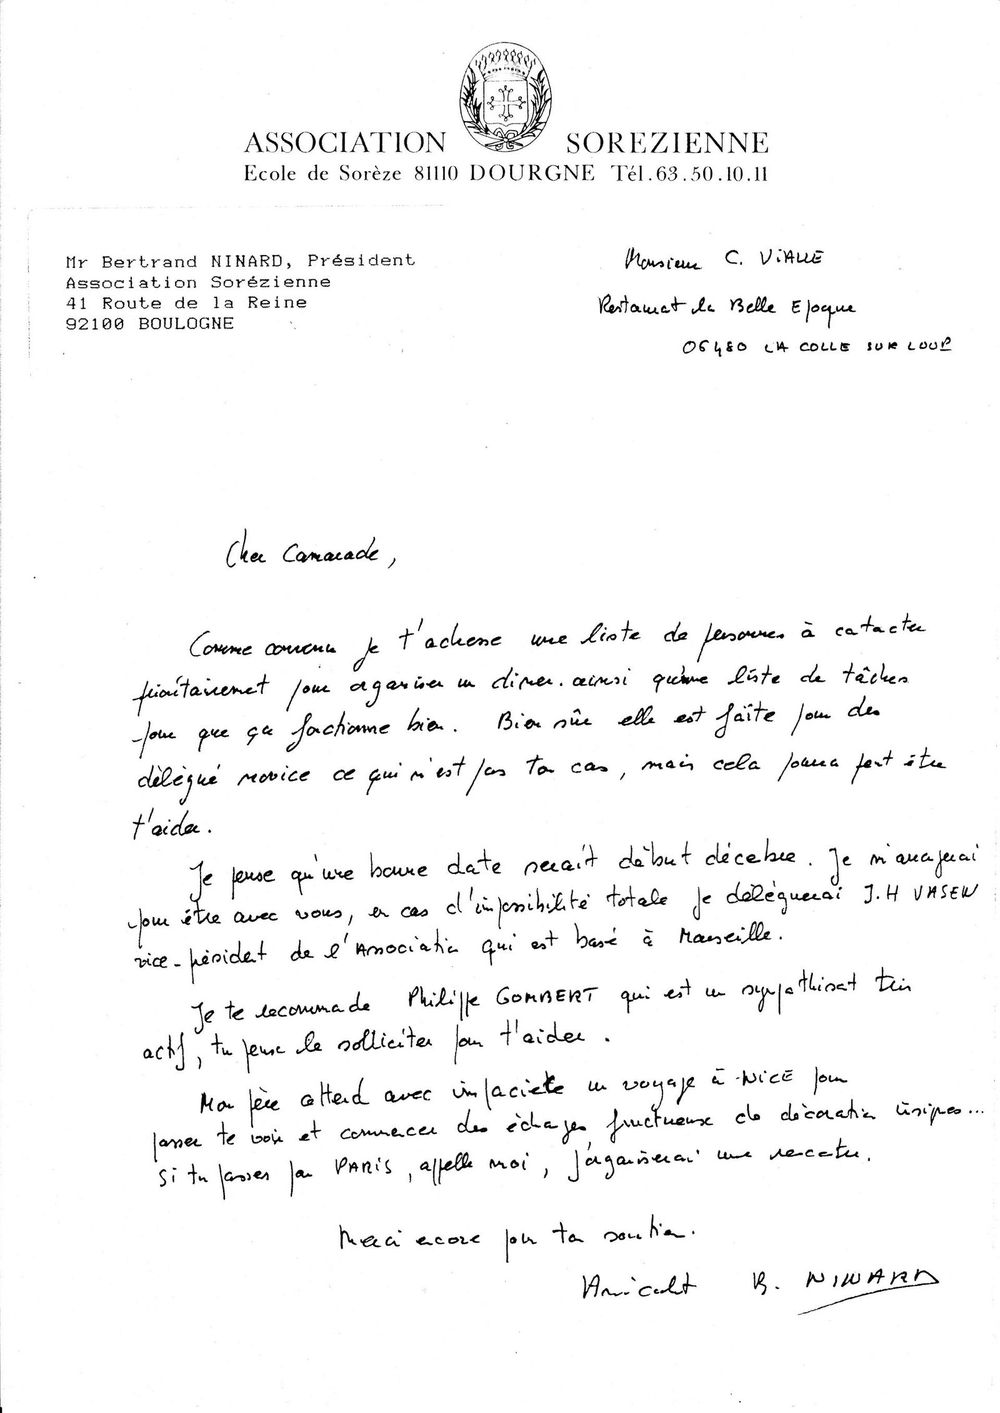 ASSOCIATION SOREZIENNE
Ecole de Sorèze 81110 DOURGNE Tél.63.50.10.11
Mr Bertrand NINARD, Président
Association Sorézienne
41 Route de la Reine
92100 BOULOGNE
Monsieur C. ViALLE
Restaurant la Belle Epoque
06480 LA COLLE SUR LOUP
Cher Camarade,
Comme convenu je t'adresse une liste de personnes à contacter
prioritairement pour organiser un diner. ainsi qu'une liste de tâches
pour que ça fonctionne bien. Bien sûr elle est faîte pour des
délégué novice ce qui n'est pas ton cas, mais cela pourra peut être
t'aider.
Je pense qu'une bonne date serait début décembre. Je m'arrangerai
pour être avec vous, en cas d'impossibilité totale je déléguerai J.H VASEN
vice-président de l'Association qui est basé à Marseille.
Je te recommande Philippe GOMBERT qui est un sympathisant très
actif, tu peux le solliciter pour t'aider.
Mon père attend avec impaciete un voyage à NICE pour
passer te voir et commencer des échanges fructueux de décoration
Si tu passes par PARIS, appelle moi, j'organiserai une rencontre.
Merci encore pour ton soutien.
Amicalt B. NINARD